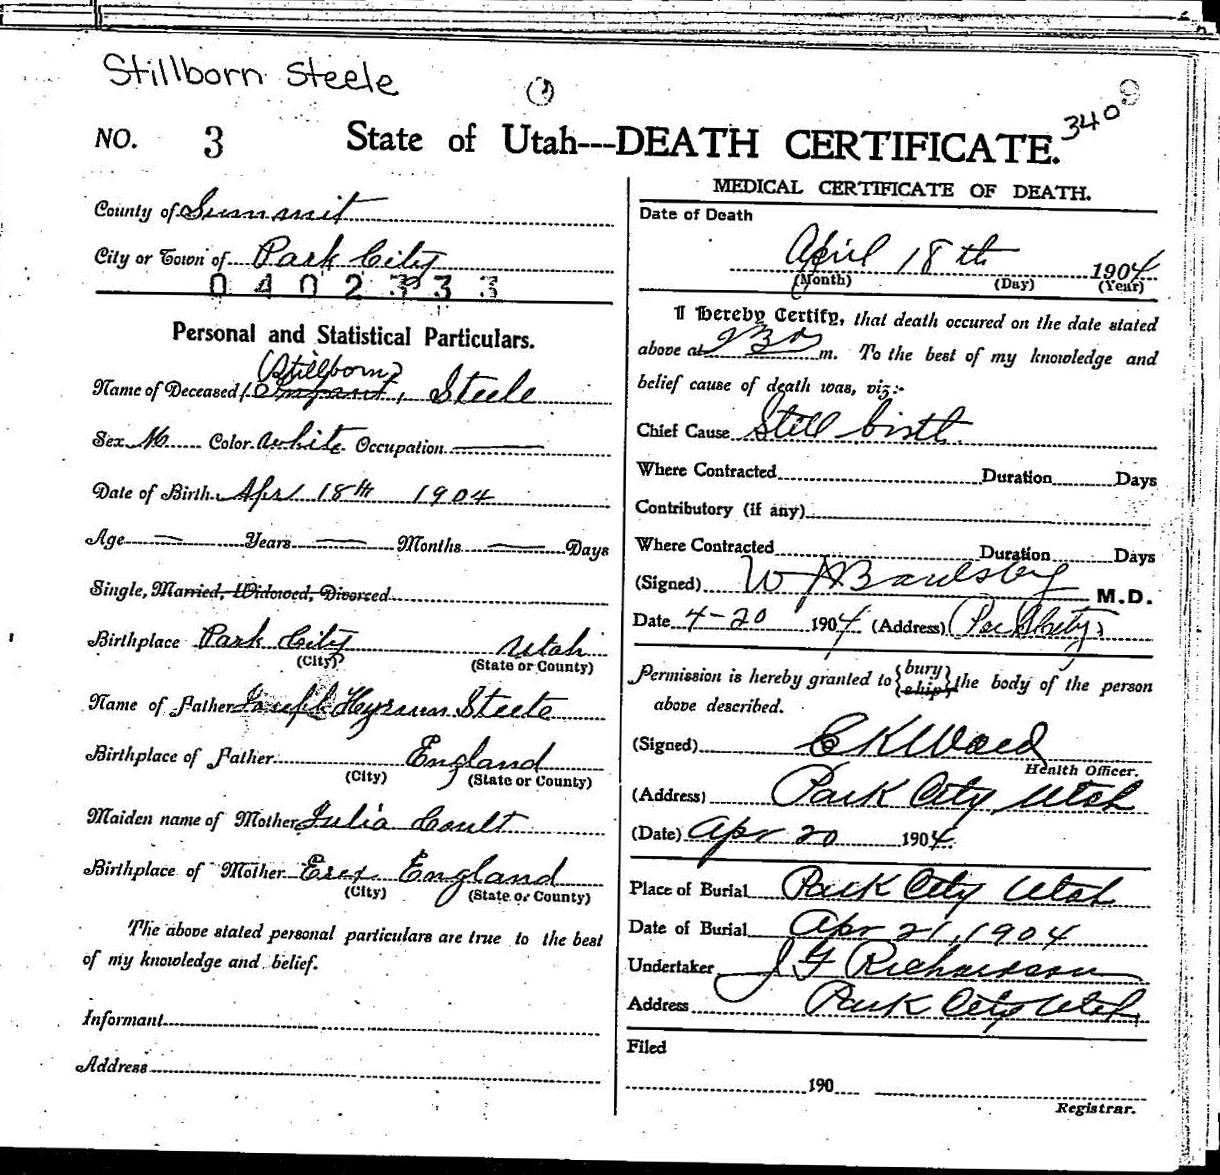 Stillborn Steele
3409
NO. 3 State of Utah---DEATH CERTIFICATE.
County of Summit
City or Town of Park City
0402333
Personal and Statistical Particulars.
(Stillborn)
Name of Deceased Infant, Steele
Sex M Color White Occupation
Date of Birth Apr 18th 1904
Age Years Months Days
Single, Married, Widowed, Divorced
Birthplace Park City Utah
(City) (State or County)
Name of Father Joseph Hyrum Steele
Birthplace of Father England
(City) (State or County)
Maiden name of Mother Julia Coult
Birthplace of Mother Esex England
(City) (State or County)
The above stated personal particulars are true to the best
of my knowledge and belief.
Informant
Address
MEDICAL CERTIFICATE OF DEATH.
Date of Death
April 18th 1904
(Month) (Day) (Year)
I hereby Certify, that death occured on the date stated
above at m. To the best of my knowledge and
belief cause of death was, viz:-
Chief Cause Still birth
Where Contracted Duration Days
Contributory (if any)
Where Contracted Duration Days
(Signed) W M.D.
Date 4-20 1904 (Address)
Permission is hereby granted to {bury
ship} the body of the person
above described.
(Signed) E K Ward
Health Officer.
(Address) Park City Utah
(Date) Apr 20 1904
Place of Burial Park City Utah
Date of Burial Apr 21, 1904
Undertaker J G Richardson
Address Park City Utah
Filed
190
Registrar.